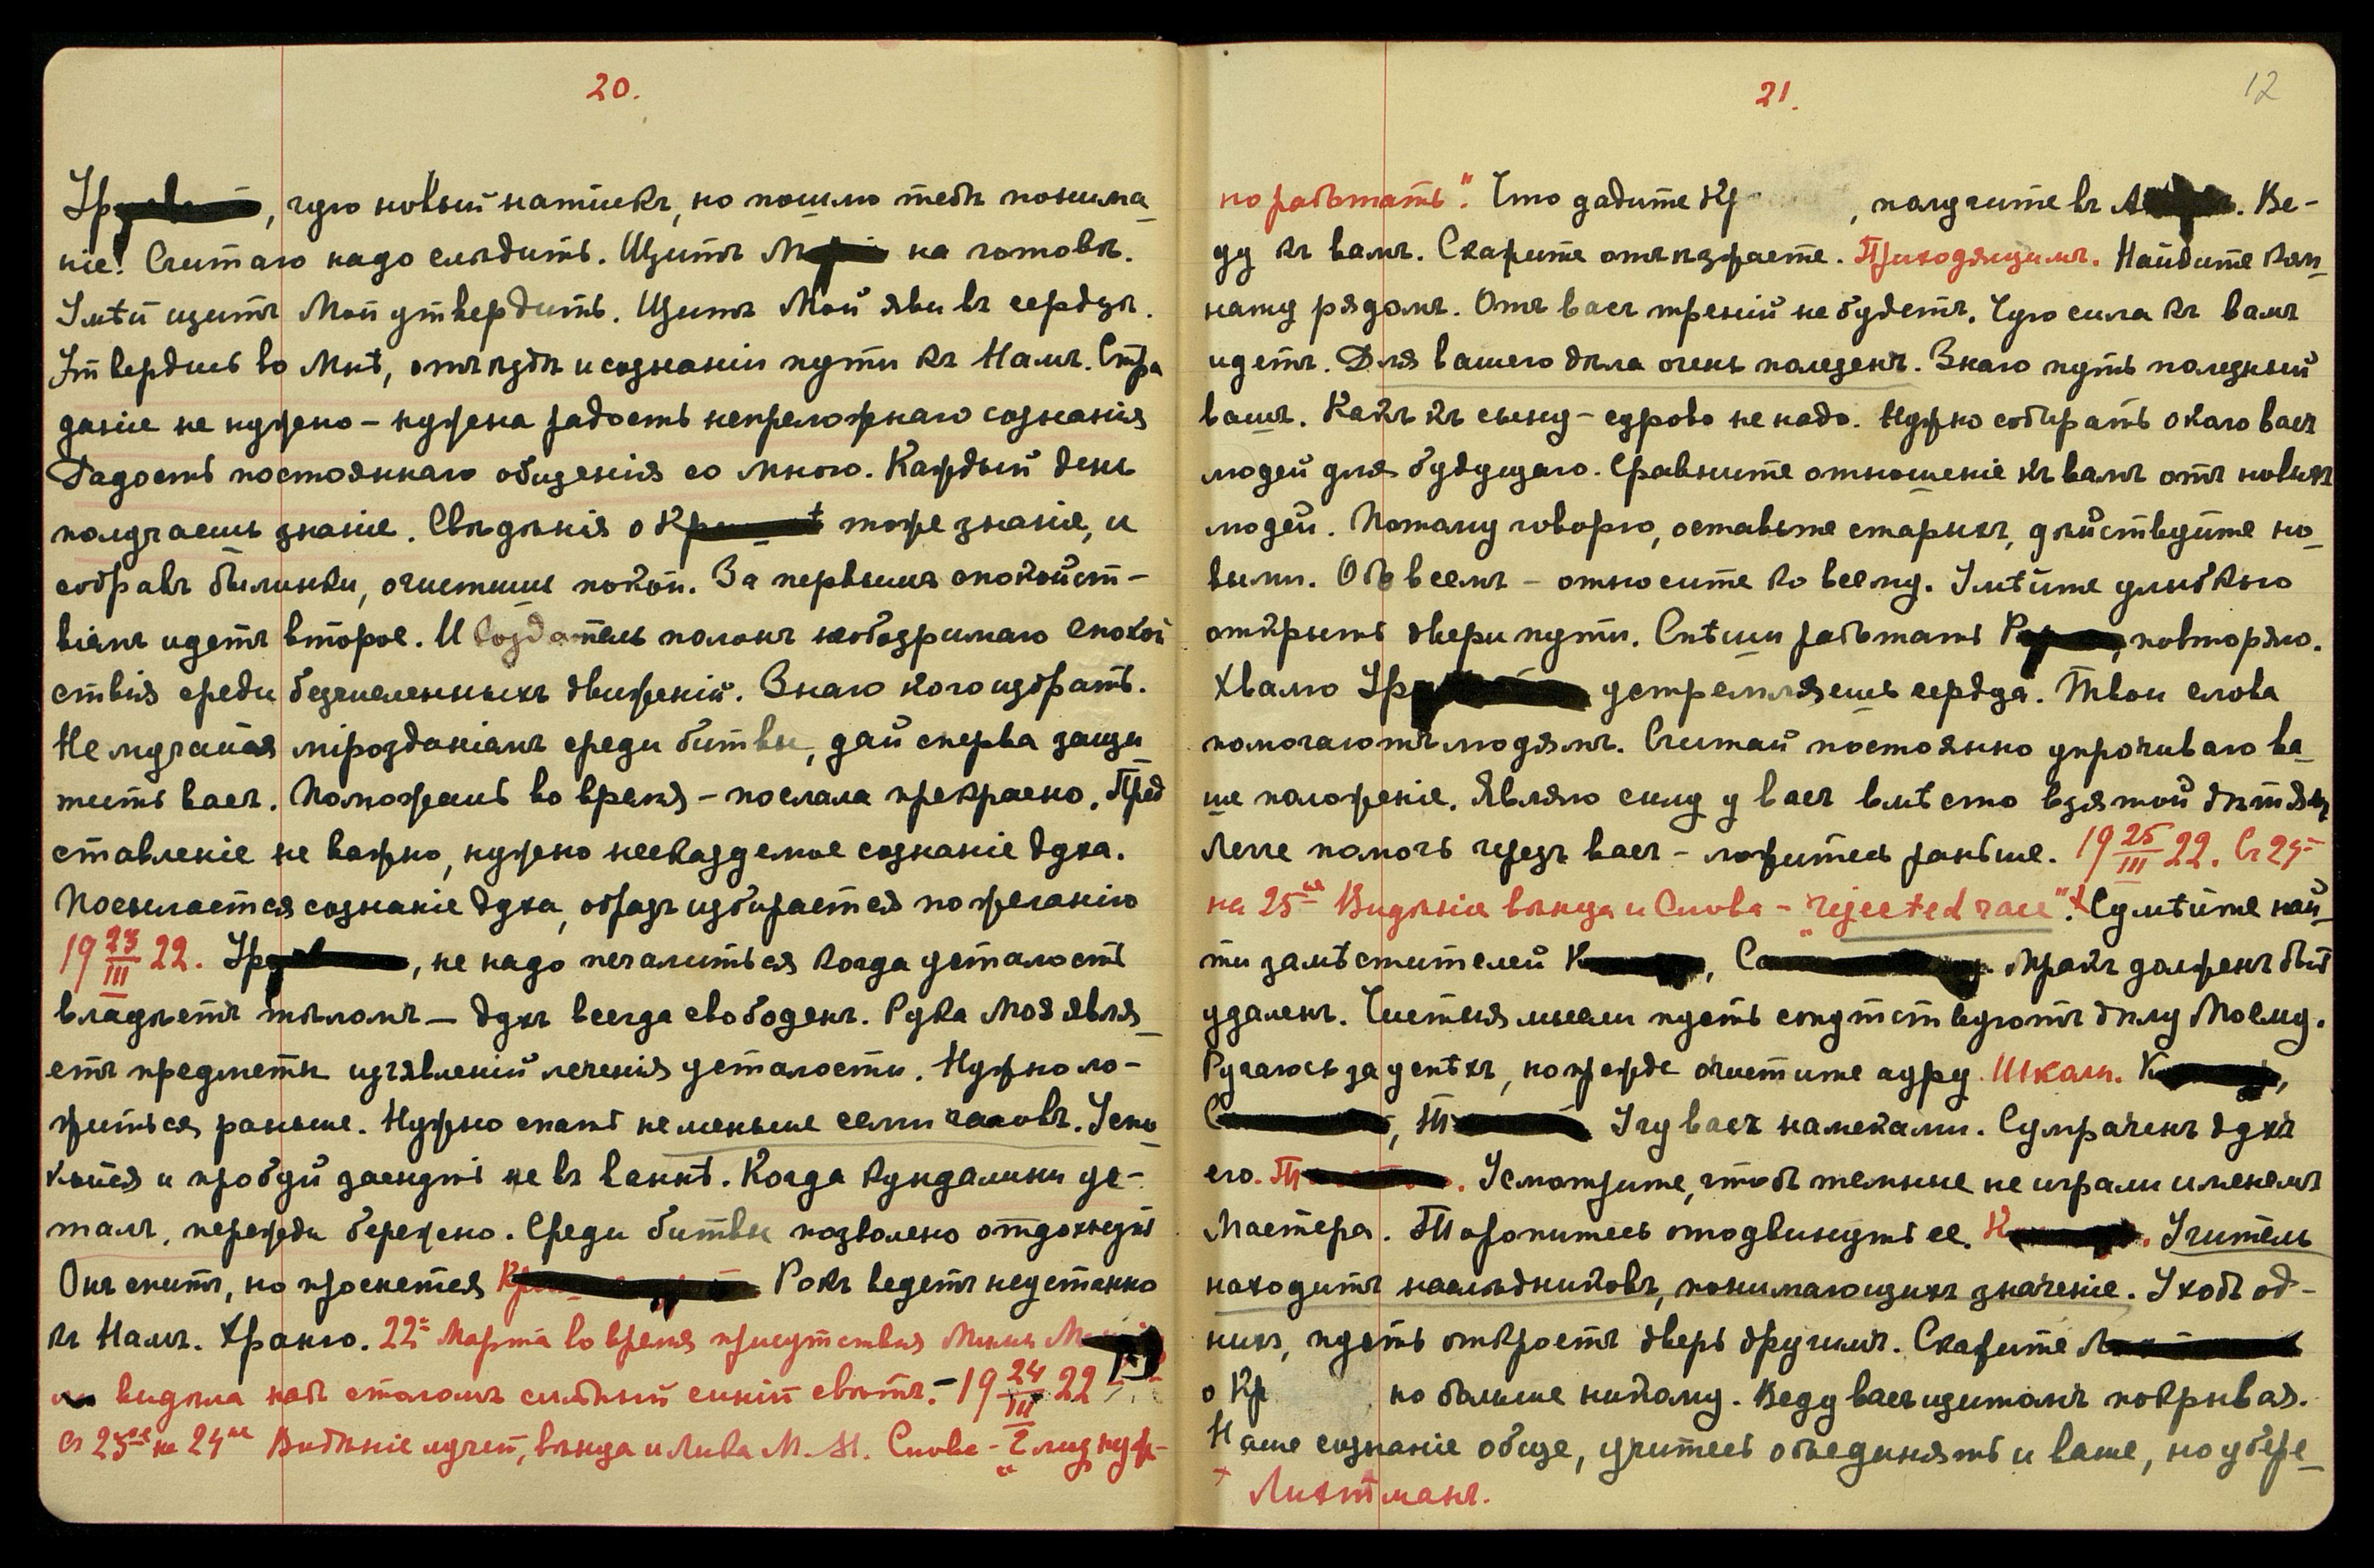 20.
Ур, чую новый натискъ, но пошлю тебѣ понима_
ніе! Считаю надо слѣдить. Щитъ М на готовѣ.
Умѣй щитъ Мой утвердить. Щитъ Мой яви въ сердцѣ.
Утвердись во Мнѣ, отъ судѣ и сознаніи пути къ Намъ. Стра
даніе не нужно – нужна радость непреложнаго сознанія
Радость постояннаго общенія со Мною. Каждый день
получаешь знаніе. Свѣдѣнія о Кр тоже знаніе, и
собравъ былинки, очистишь покой. За первымъ спокойст-
віемъ идетъ второе. И Создатель полонъ необозримаго спокой
ствія среди безчисленныхъ движеній. Знаю кого избрать.
Не мучайся мірозданіемъ среди битвы, дай сперва защи_
тить васъ. Поможешь во время – послала прекрасно. Пред
ставленіе не важно, нужно несказуемое сознаніе духа.
Посылается сознаніе духа, образъ избирается по желанію
19 23/III 22. Ур, не надо печалиться когда усталость
владѣетъ тѣломъ — духъ всегда свободенъ. Рука Моя явля_
етъ предметы изъявленій леченія усталости. Нужно ло-
житься раньше. Нужно спать не меньше семи часовъ. Успо
койся и пробуй заснуть не въ ваннѣ. Когда кундалини ус-
талъ, пережди бережно. Среди битвы позволено отдохнуть
Онъ спитъ, но проснется Кр Рокъ ведетъ неустанно
къ Намъ. Храню. 22= Марта во время присутствія М
видѣла надъ столомъ сильный синій свѣтъ. – 19 24/III 22
Съ 23= на 24= Видѣніе лучей, вѣнца и Лика М. М. Слова – "2 лица нуж-
21.
12
но работать". Что дадите Кр , получите въ А. Ве-
ду къ вамъ. Скажите отъ играете. Приходящимъ. Найдите ком_
нату рядомъ. Отъ васъ треній не будетъ. Чую сила къ вамъ
идетъ. Для вашего дѣла очень полезенъ. Знаю путь полезный
вашъ. Какъ къ сыну – сурово не надо. Нужно собирать около васъ
людей для будущаго. Сравните отношеніе къ вамъ отъ новыхъ
людей. Потому говорю, оставьте старыхъ, дѣйствуйте но_
выми. Обо всемъ – относите ко всему. Умѣйте улыбкою
открыть двери пути. Спѣши работать Р, повторяю.
Хвалю Ур устремляешь сердца. Твои слова
помогаютъ людямъ. Считай постоянно упрочиваю ва_
ше положеніе. Являю силу у васъ вмѣсто взятой дѣтямъ
Легче помочь черезъ васъ – ложитесь раньше. 19 25/III 22. Съ 24=
на 25= Видѣніе вѣнца и Слова – "rejected race".+ Сумѣйте най_
ти замѣстителей К, С Мракъ долженъ быть
удаленъ. Чистыя мысли пусть сопутствуютъ дѣлу Моему.
Ручаюсь за успѣхъ, но прежде очистите ауру. Школы. К,
С, Т Учу васъ намеками. Сумраченъ духъ
его. Т. Усмотрите, чтобъ темные не играли именемъ
Мастера. Торопитесь отодвинуть ее. К. Учитель
находитъ наслѣдниковъ, понимающихъ значеніе. Уходъ од-
нихъ, пусть откроетъ дверь другимъ. Скажите Л
о Кр но больше никому. Веду васъ щитомъ покрывая.
Наше сознаніе обще, учитесь объединять и ваше, но убере_
+ Лихтманъ.